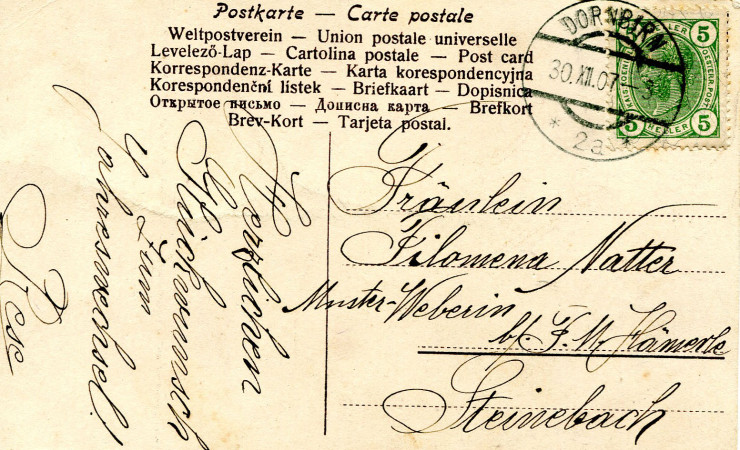 Postkarte — Carte postale
Weltpostverein — Union postale universelle
Levelező-Lap — Cartolina postale — Post card
Korrespondenz-Karte — Karta korespondencyjna
Korespondenční lístek — Briefkaart — Dopisnica
Открытое письмо — Дописна карта — Brefkort
Brev-Kort — Tarjeta postal.
DORNBIRN
30.XII.07
* 2a *
5 5
5 HELLER 5
Fräulein
Filomena Natter
Muster-Weberin
b/ F. M. Hämerle
Steinebach
Herzlichen
Glückwunsch
zum
Jahreswechsel!
Rese